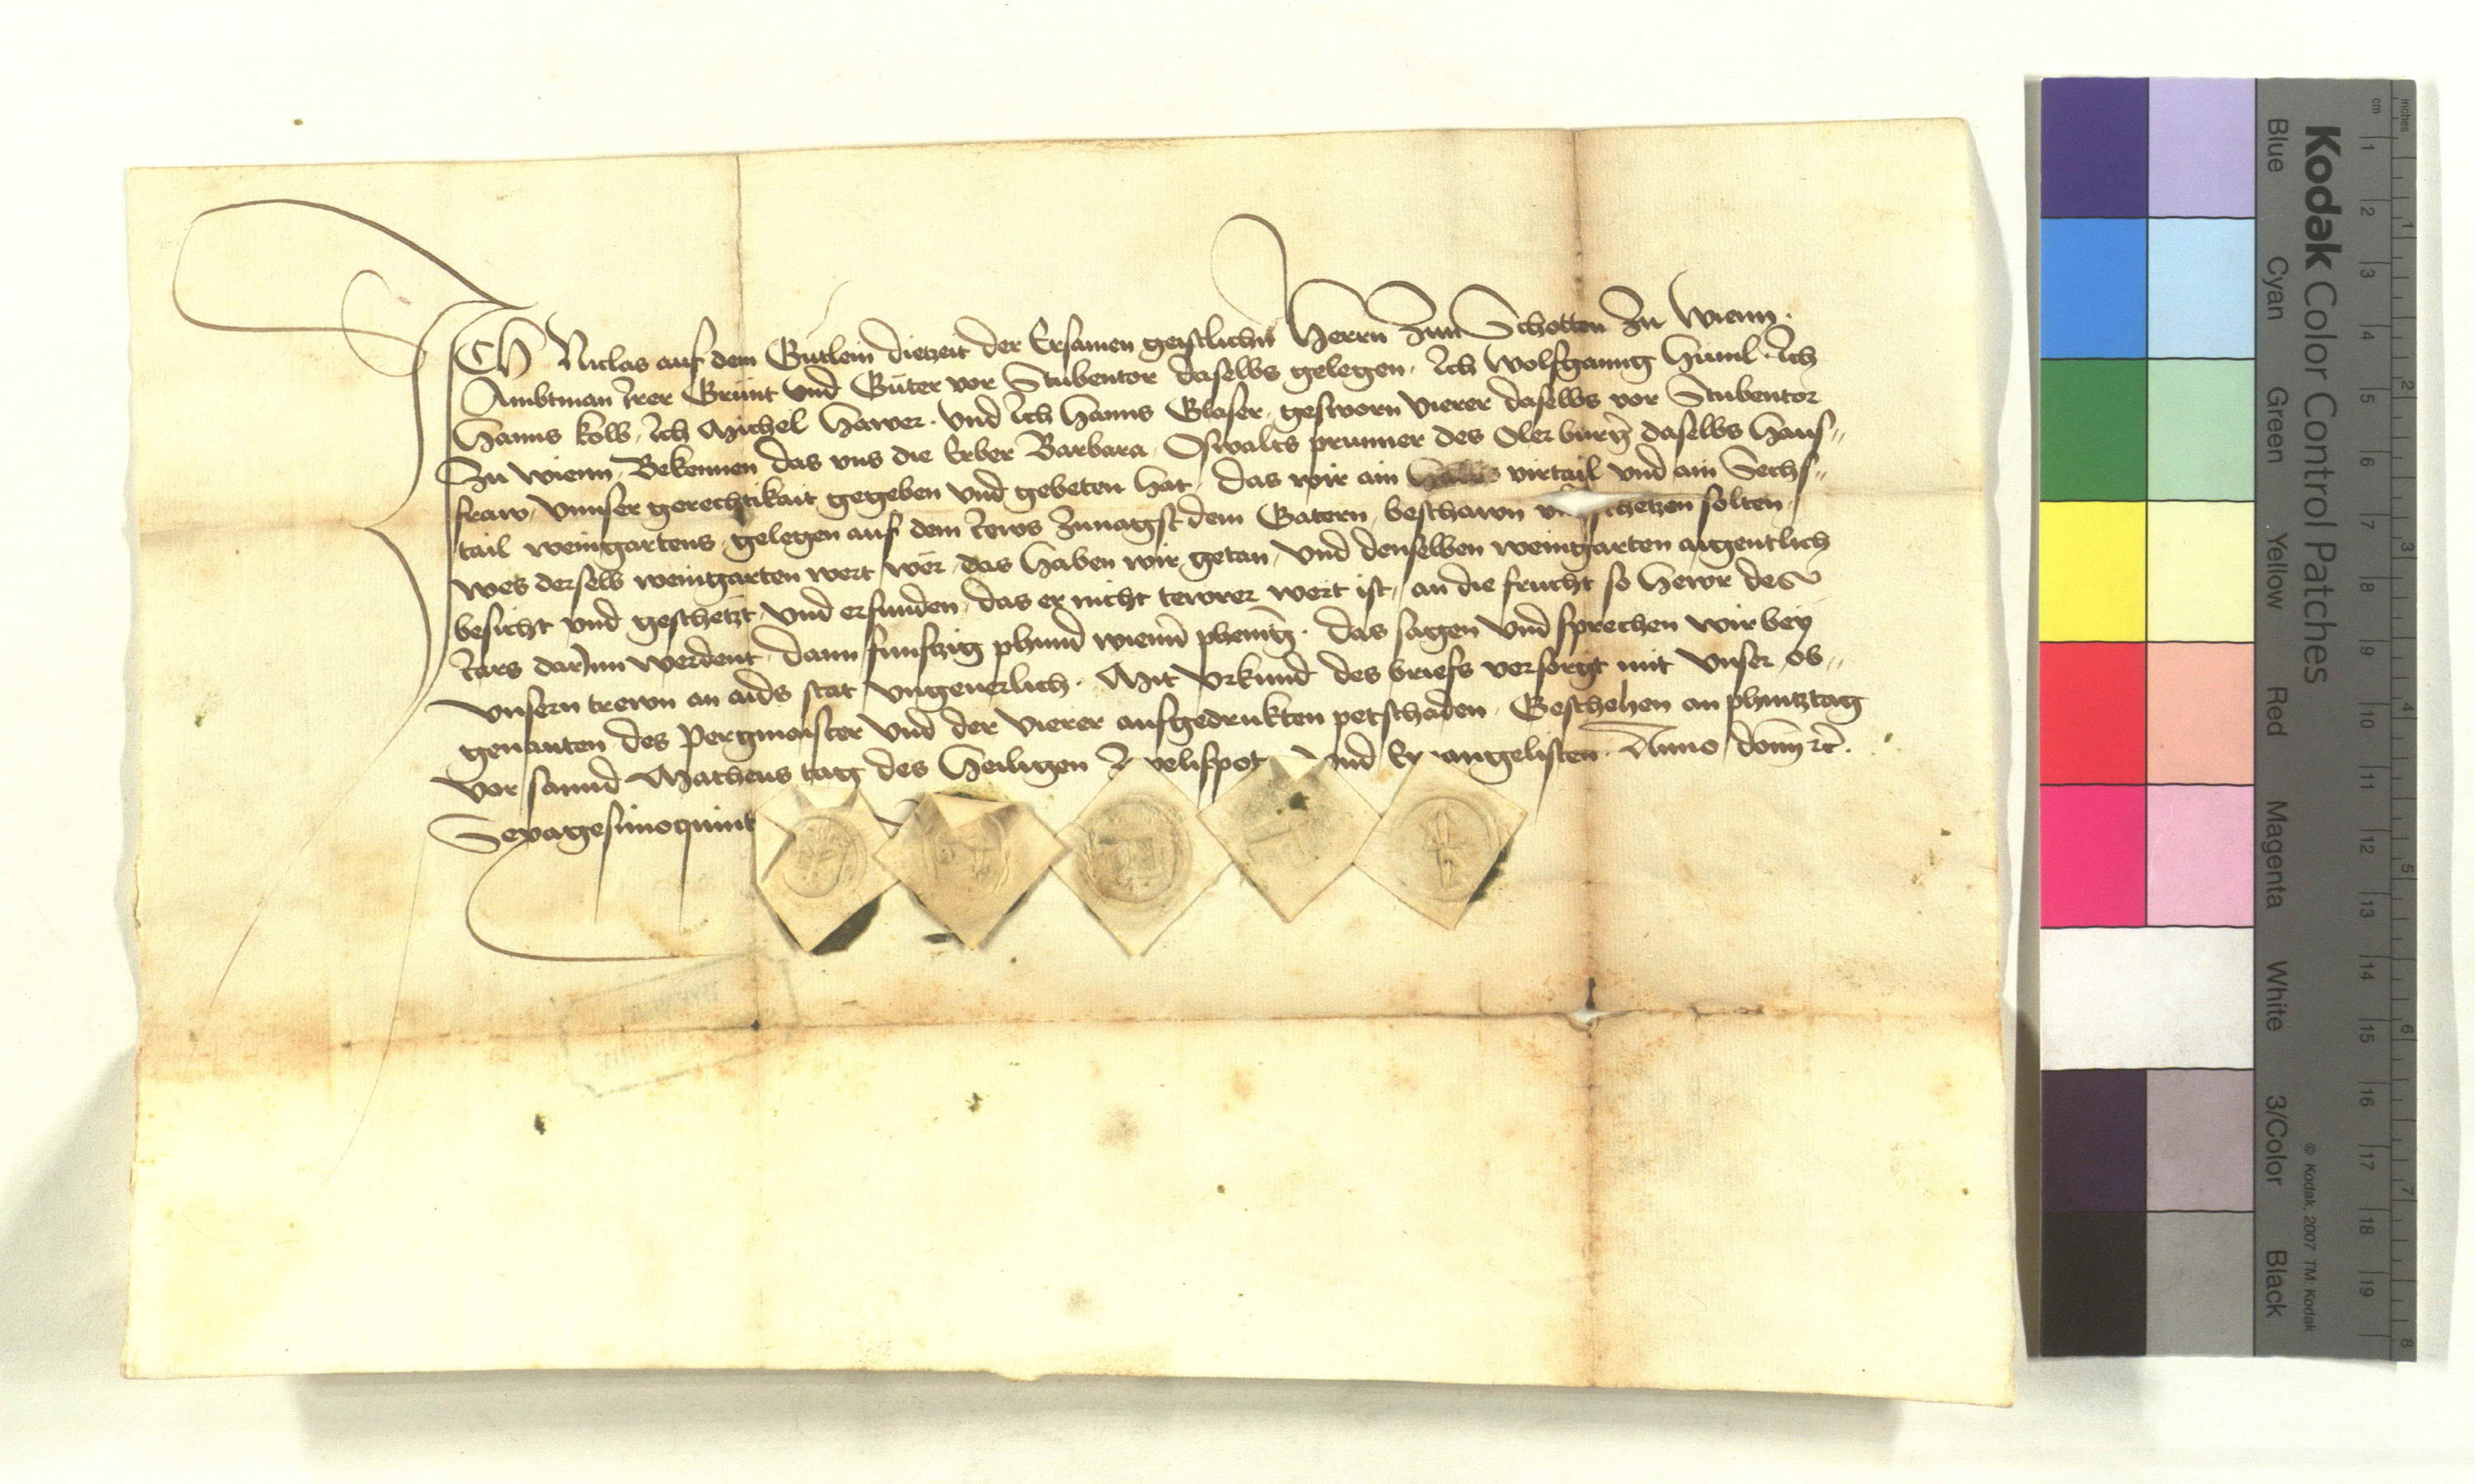 ICH Niclas auf dem Gütlein dietzeit der Ersamen geistlichn Herrn zun Schotten zu Wienn.
Ambtman irer Grünt vnd Güter vor Stubentor daselbs gelegen, Ich Wolfganng Hüml. Ich
Hanns Kolb, Ich Michel Hawer. vnd Ich Hanns Glaser, gesworn Vierer daselbs vor Stubentor
Zu Wienn, Bekennen das vns die Erber Barbara, Oswalts prunner des Oler burg daselbs Haus„
fraw, vnnser gerechtikait gegeben vnd gebeten hat, das wir ain virtail vnd ain Sechs„
tail weingartens, gelegen auf dem zunagst dem Gatern, beschawn schetzen solten,
wes derselb weingarten wert wër, das haben wir getan, vnd denselben weingarten aigentlich
besicht vnd geschetzt, vnd erfunden, das er nicht tewrer wert ist, an die frucht so hewr des
iars darinn werdent, dann funfzig phund wienn phenig. das sagen vnd sprechen wir bey
vnsern trewn an aids stat vngeuerlich. Mit vrkund des briefs versorgt mit vnser ob„
genanten des Pergmaister vnd der Vierer aufgedrukten petschaden, Geschehen an phintztag
vor sannd Matheus tag des heiligen vnd Ewangelisten. Anno domi etc.
Sexagesimoquint
Kodak Color Control Patches
Blue Cyan Green Yellow Red Magenta White 3/Color Black
© Kodak, 2007 TM: Kodak
cm 1 2 3 4 5 6 7 8 9 10 11 12 13 14 15 16 17 18 19
inches 1 2 3 4 5 6 7 8